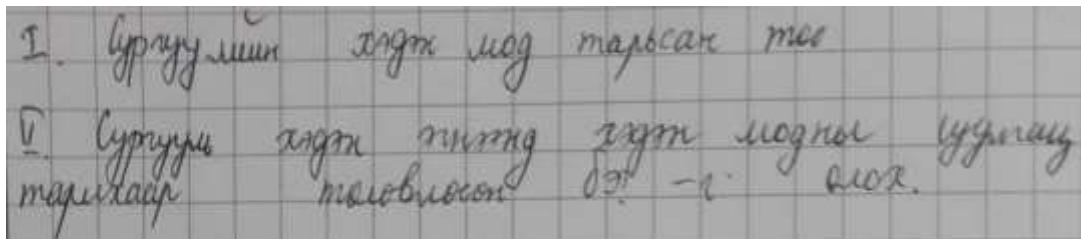 I. Сургуулийн хэдэн мод тарьсан тоо
V. Сургууль хэдэн хэдэн модны суулгац
тарихаар төлөвлөсөн бэ? -г олох.